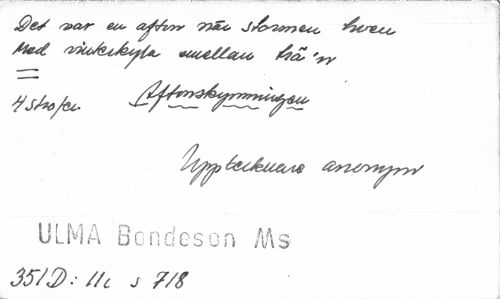 Det var en afton när stormen hven
Med vinterkyla emellan trä'n
4 strofer. Aftonskymningen
Upptecknare anonym
ULMA Bondeson Ms
351D: 11c s 718